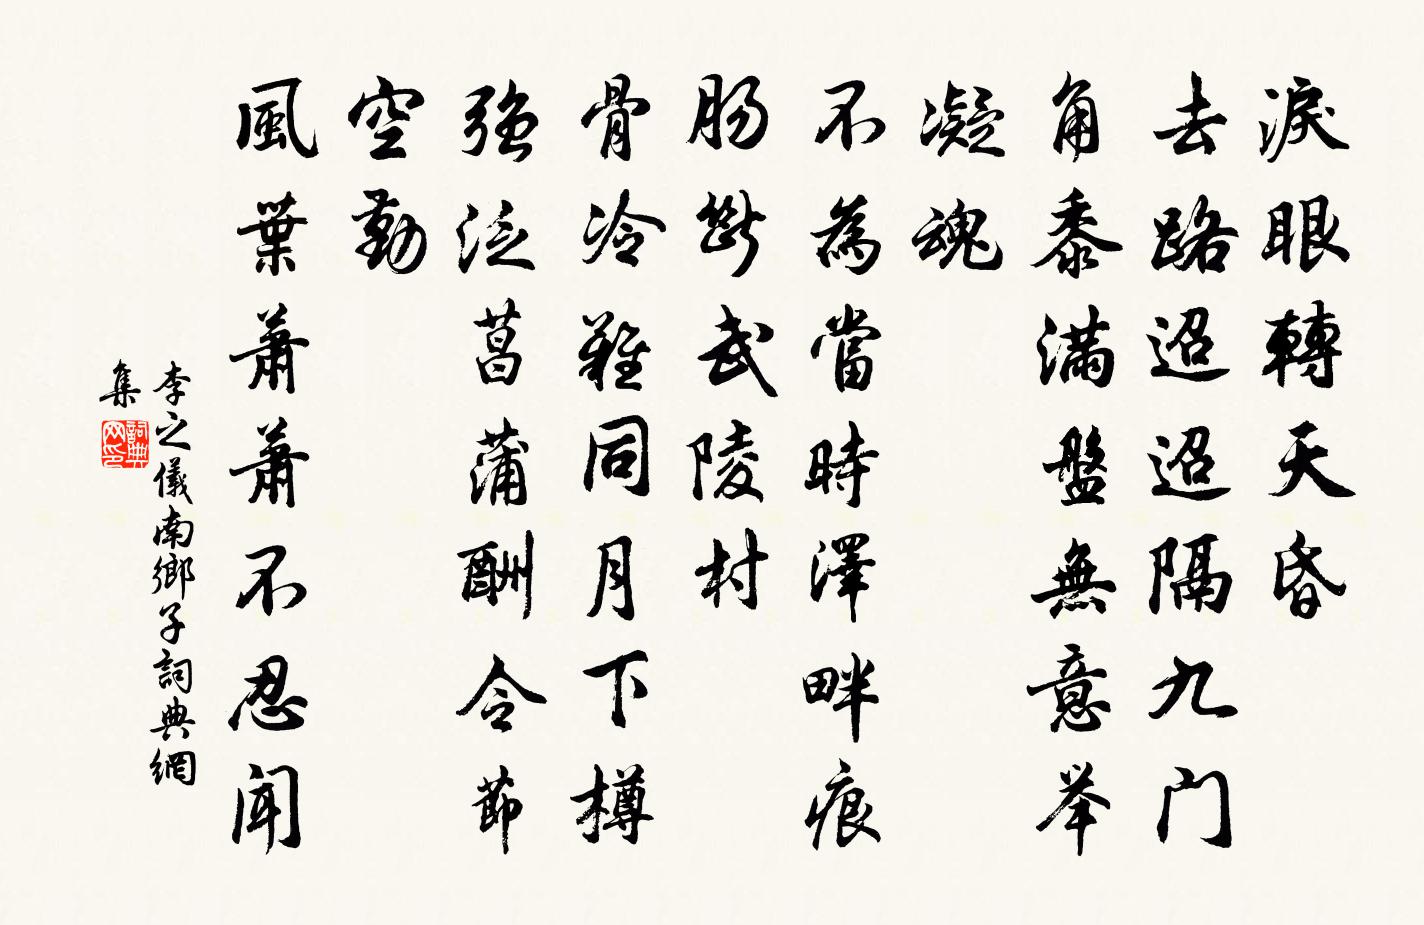 淚眼轉天昏
去路迢迢隔九门
角黍滿盤無意举
凝魂
不為當時澤畔痕
腸斷武陵村
骨冷難同月下樽
强泛菖蒲酬令節
空勤
風葉蕭蕭不忍聞
李之儀南鄉子詞典網
集
詞典
网印